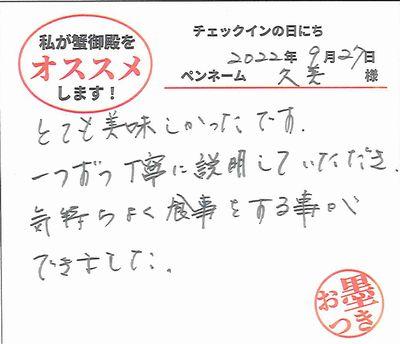 私が蟹御殿を
オススメ
します！
チェックインの日にち
2022年 9月27日
ペンネーム 久美 様
とても美味しかったです.
一つずつ丁寧に説明していただき、
気持ちよく食事をする事が
できました.
お墨つき